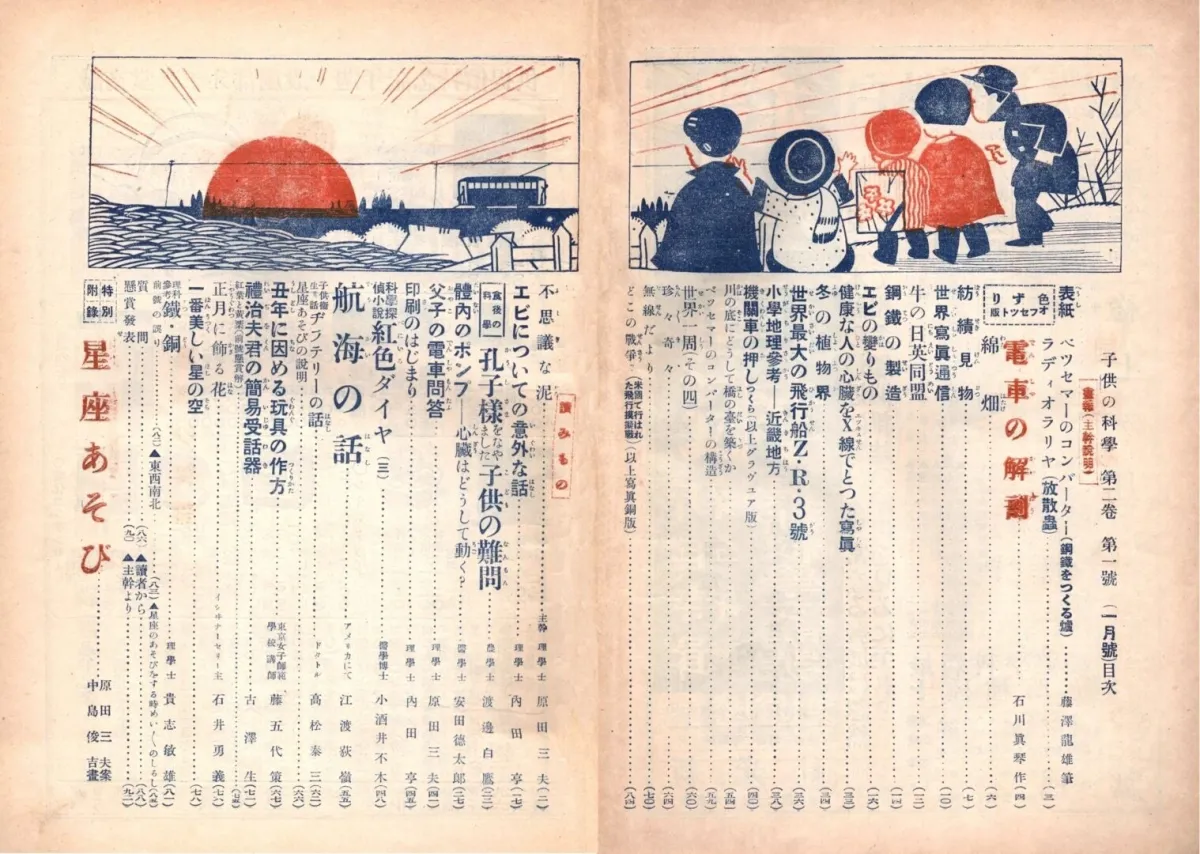 子供の科學 第二卷 第一號 (一月號)目次
畫報(主幹說明)
表紙
ベツセマーのコンバーター(鋼鐵をつくる爐)……藤澤龍雄筆
ラディオラリヤ(放散蟲)……(三)
色ずり
オフセツト版
電車の解剖……石川眞琴作(四)
綿畑……(六)
紡績見物……(七)
世界寫眞通信……(一〇)
牛の日英同盟……(一二)
鋼鐵の製造……(一四)
エビの變りもの……(一六)
健康な人の心臟をX線でとつた寫眞……(三三)
冬の植物界……(三四)
世界最大の飛行船Z・R・3號……(三六)
小學地理參考―近畿地方……(三八)
機關車の押しつくら(以上グラヴュア版)……(四〇)
川の底にどうして橋の臺を築くか……(五四)
ベツセマーのコンバーターの構造……(五九)
世界一周(その四)……(六〇)
珍々奇々……(六四)
無線だより……(七〇)
どこの戰爭(以上寫眞銅版)……(八四)
讀みもの
不思議な泥……主幹 理學士 原田三夫(二)
エビについての意外な話……理學士 內田亨(一七)
食後の科學
孔子樣をなやました子供の難問……農學士 渡邊白鷹(二二)
體內のポンプ―心臟はどうして動く?……醫學士 安田德太郎(二七)
父子の電車問答……理學士 原田三夫(四二)
印刷のはじまり……理學士 內田亨(四五)
科學探偵小說 紅色ダイヤ(三)……醫學博士 小酒井不木(四八)
航海の話……アメリカにて 江渡荻嶺(五五)
子供衞生の話 ヂフテリーの話……ドクトル 高松泰三(六二)
星座あそびの說明……(六六)
丑年に因める玩具の作方……東京女子師範學校講師 藤五代策(六七)
禮治夫君の簡易受話器……古澤生(七二)
正月に飾る花……石井勇義(七七)
一番美しい星の空……(七八)
理科參考 鐵・銅……理學士 貴志敏雄(八一)
前號の誤り……(八二)▲東西南北……(八三)▲星座のあそびをする時めいめいのしるし(八五)
質問……(八六)▲讀者から……(八八)
懸賞發表……(九〇)▲主幹より……(九二)
特別附錄
星座あそび……原田三夫案
中島俊吉畫